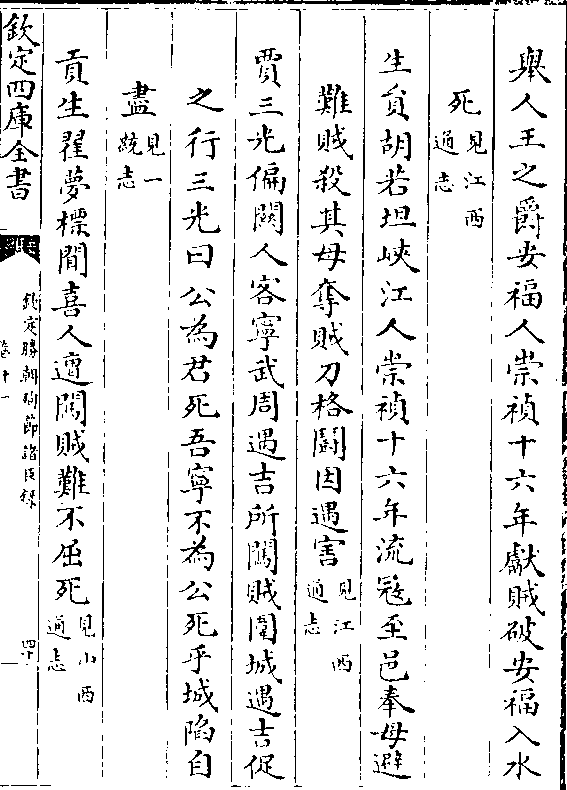 舉人王之爵安福人崇禎十六年獻賊破安福入水
死見江西通志
生員胡若坦峽江人崇禎十六年流寇至邑奉母避
難賊殺其母奪賊刀格鬬因遇害見江西通志
賈三光偏關人客寧武周遇吉所闖賊圍城遇吉促
之行三光曰公為君死吾寧不為公死乎城陷自
盡見一統志
貢生翟夢標聞喜人遭闖賊難不屈死見山西通志
欽定四庫全書
欽定勝朝殉節諸臣錄
卷十一
四十